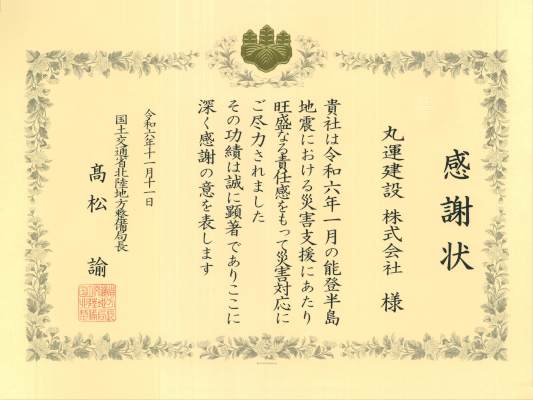 感謝状
丸運建設 株式会社 様
貴社は令和六年一月の能登半島
地震における災害支援にあたり
旺盛なる責任感をもって災害対応に
ご尽力されました
その功績は誠に顕著でありここに
深く感謝の意を表します
令和六年十一月十一日
国土交通省北陸地方整備局長
髙松 諭